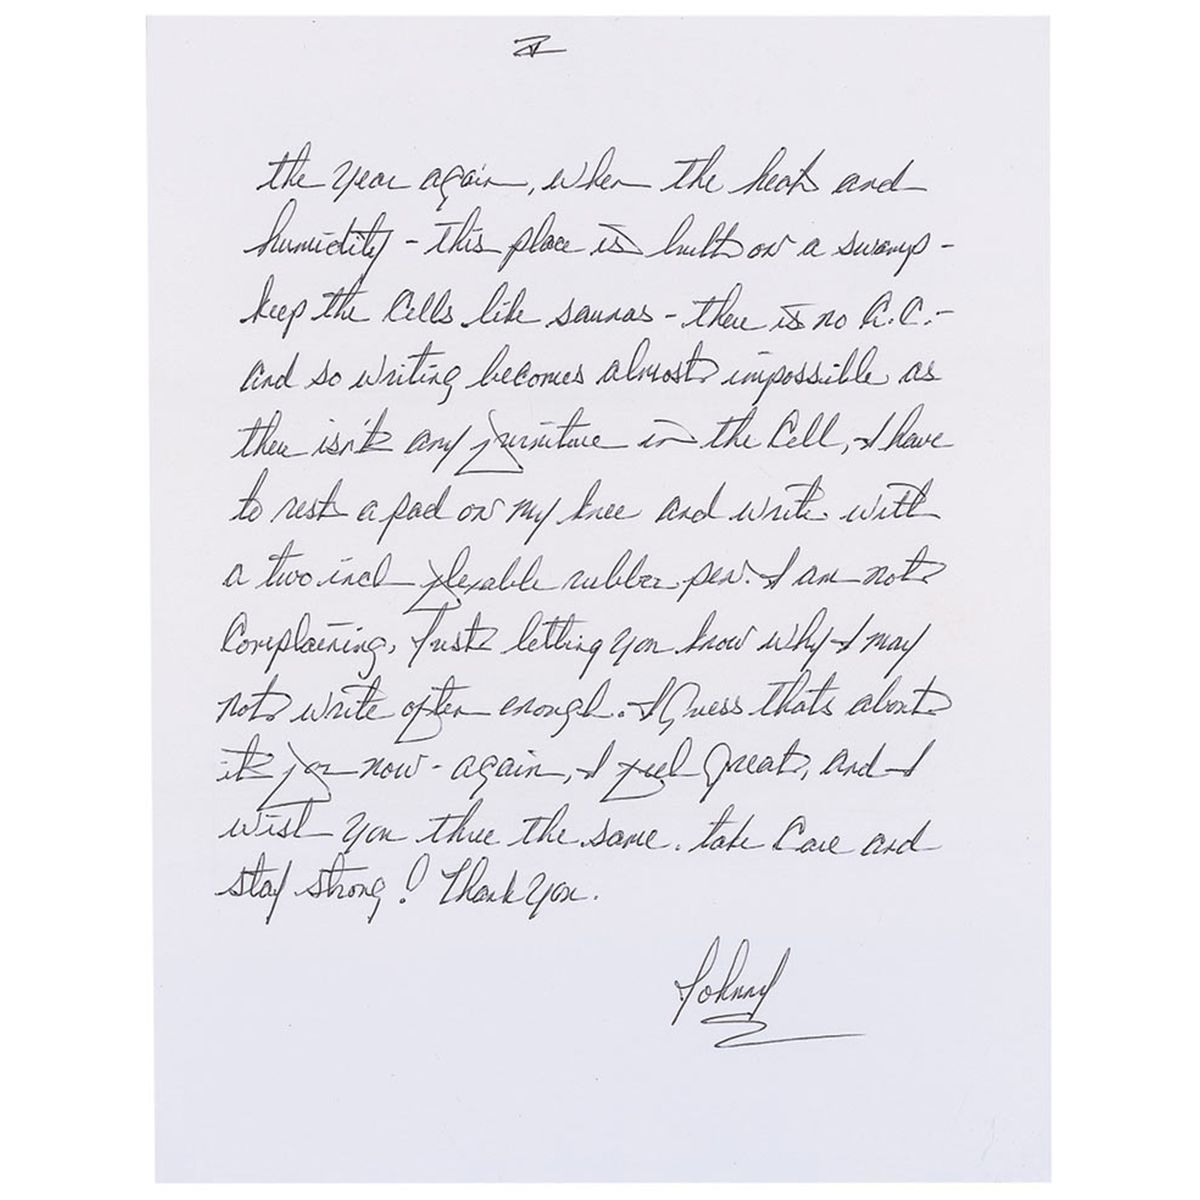 the year again, when the heat and
humidity - this place is built on a swamp -
keep the Cells like saunas - there is no A.C. -
and so writing becomes almost impossible as
there isn't any furniture in the Cell, I have
to rest a pad on my knee and write with
a two inch flexable rubber pen. I am not
Complaining, Just letting you know why I may
not write often enough. I Guess thats about
it for now - again, I feel Great, and I
wish you three the same. take Care and
stay strong! Thank You.
Johnny